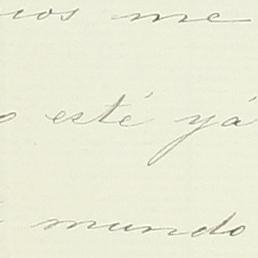 me
esté yá
mundo